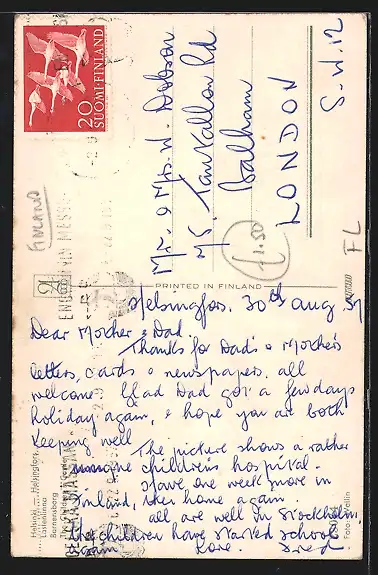 20
SUOMI-FINLAND
FINLAND
Mr. & Mrs. W. Dobson
Rd
Balham
LONDON
S.W.12
£1.50
FL
PRINTED IN FINLAND
Helsingfors. 30th aug 57
Dear Mother & Dad.
Thanks for Dad's & Mother's
letters, cards & newspapers, all
welcome. Glad Dad got a few days
holiday again, & hope you are both
keeping well
The picture shows a rather
children's hospital.
Have one week more in
Finland, then home again.
all are well in Stockholm,
The children have started school
again. Love.
Helsinki Helsingfors
Lastenlinna
Barnensborg